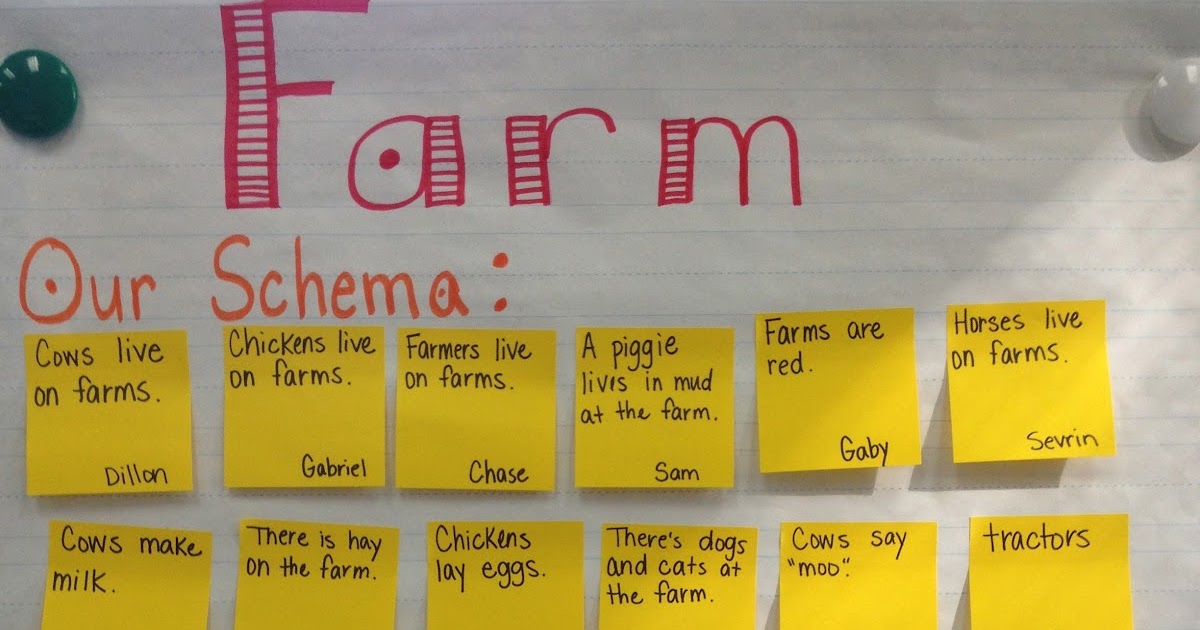 Farm
Our Schema:
Cows live
on farms.
Dillon
Chickens live
on farms.
Gabriel
Farmers live
on farms.
Chase
A piggie
lives in mud
at the farm.
Sam
Farms are
red.
Gaby
Horses live
on farms.
Sevrin
Cows make
milk.
There is hay
on the farm.
Chickens
lay eggs.
There's dogs
and cats at
the farm.
Cows say
"moo".
tractors